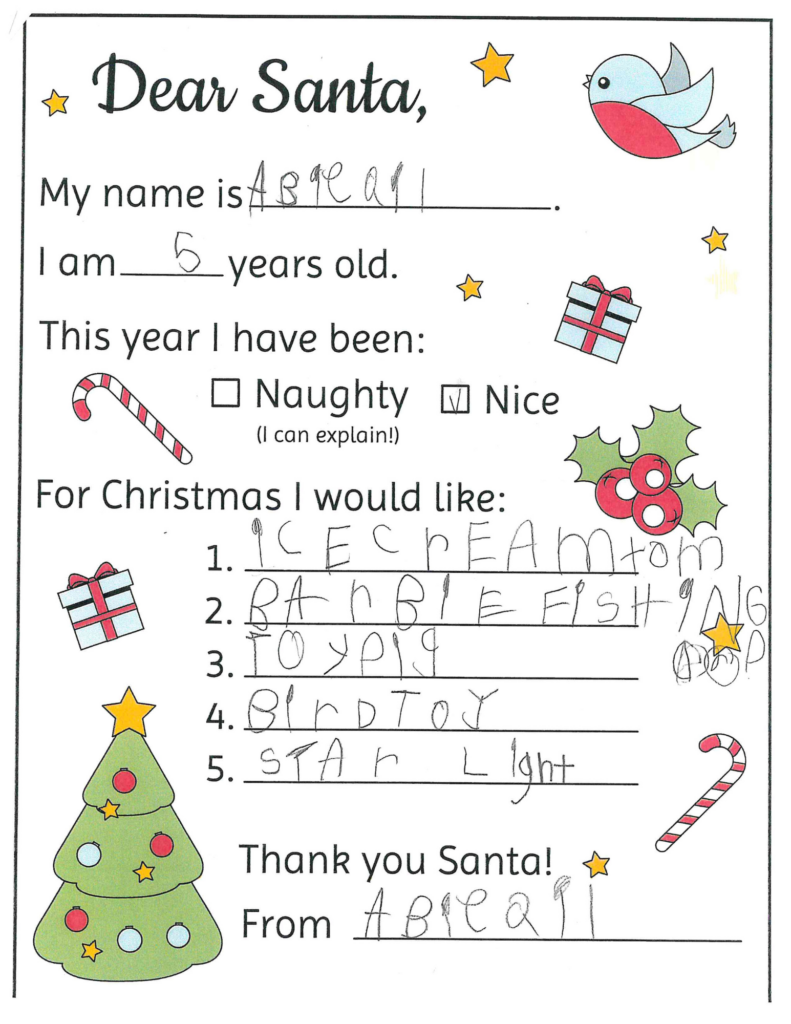 Dear Santa,
My name is ABIEAIl.
I am 5 years old.
This year I have been:
Naughty Nice
(I can explain!)
For Christmas I would like:
1. ICECrEAm from
2. BArBIE FISHING
3. TOYPIg
4. BIrDToY
5. STAr Light
Thank you Santa!
From ABIEAIl